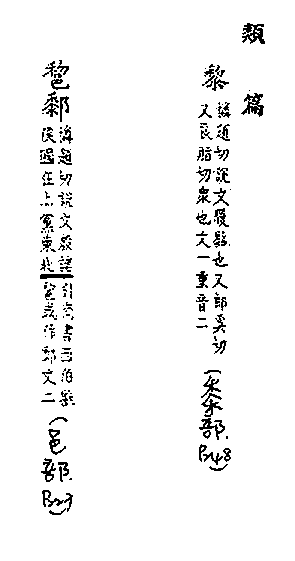 類篇
黎
憐題切說文履黏也又郎奚切
又良脂切衆也文一重音二
(黍部.
憐題切說文殷諸
侯國在上黨東北
引尚書西伯戡
或作文二
(邑部.